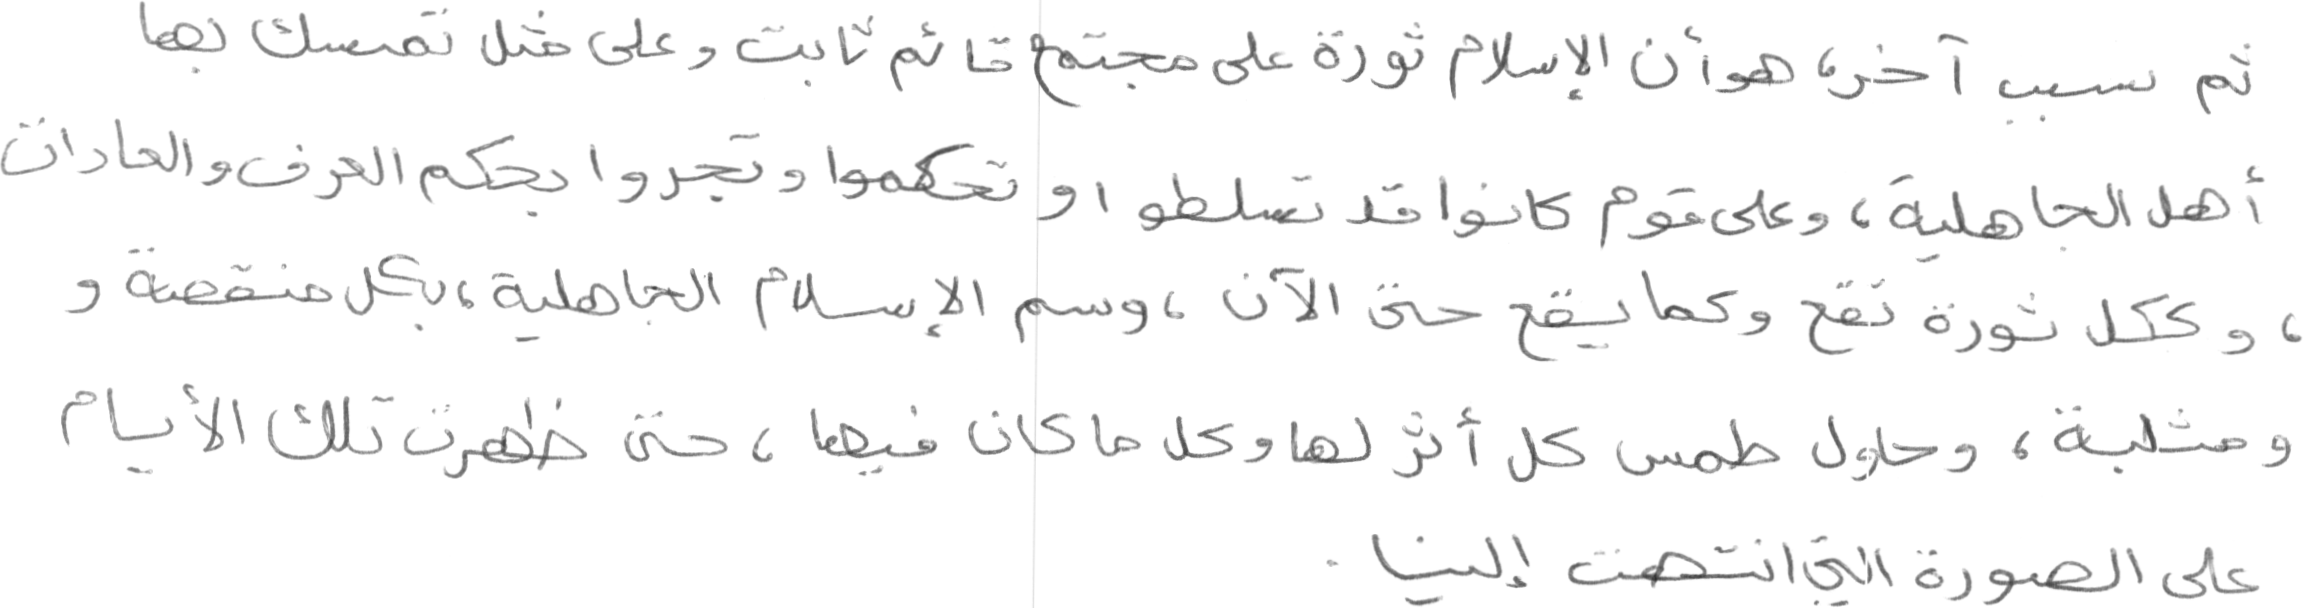 ثم سبب آخر، هو أن الإسلام ثورة على مجتمع قائم ثابت وعلى مثل تمسك بها
أهل الجاهلية، وعلى قوم كانوا قد تسلطوا وتحكموا وتجبروا بحكم العرف والعادات
، وككل ثورة تقع وكما يقع حتى الآن، وسم الإسلام الجاهلية، بكل منقصة و
ومثلبة، وحاول طمس كل أثر لها وكل ما كان فيها، حتى ظهرت تلك الأيام
على الصورة التي انتهت إلينا.